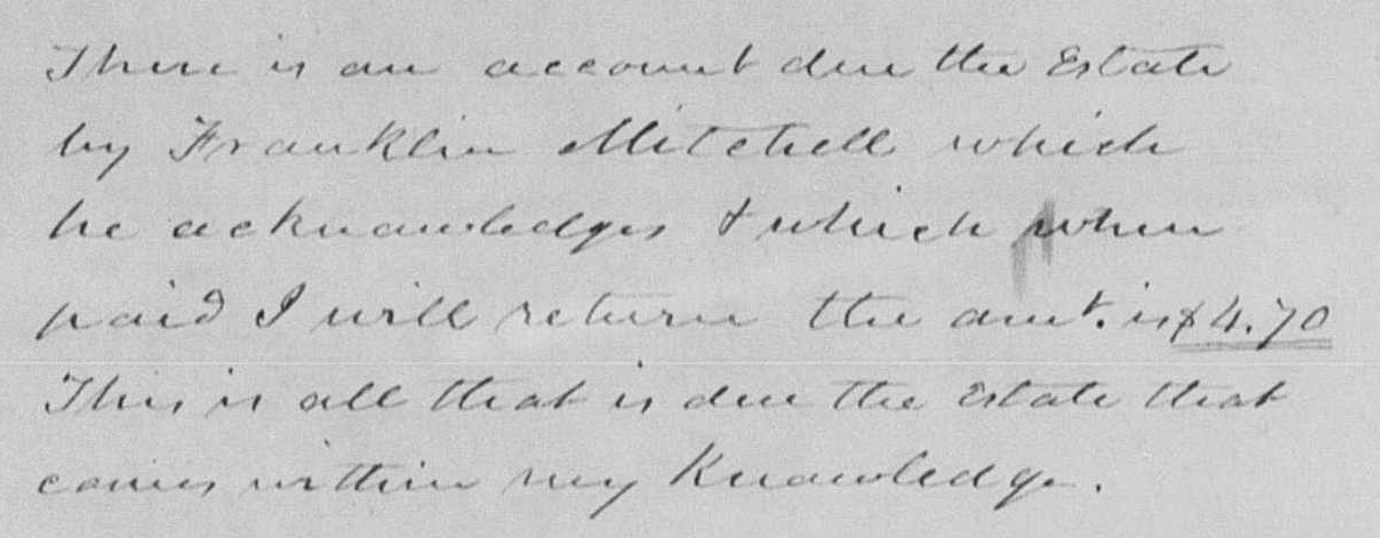 There is an account due the Estate
by Franklin Mitchell which
he acknowledges & which when
paid I will return the amt. is $4.70
This is all that is due the Estate that
comes within my Knowledge.